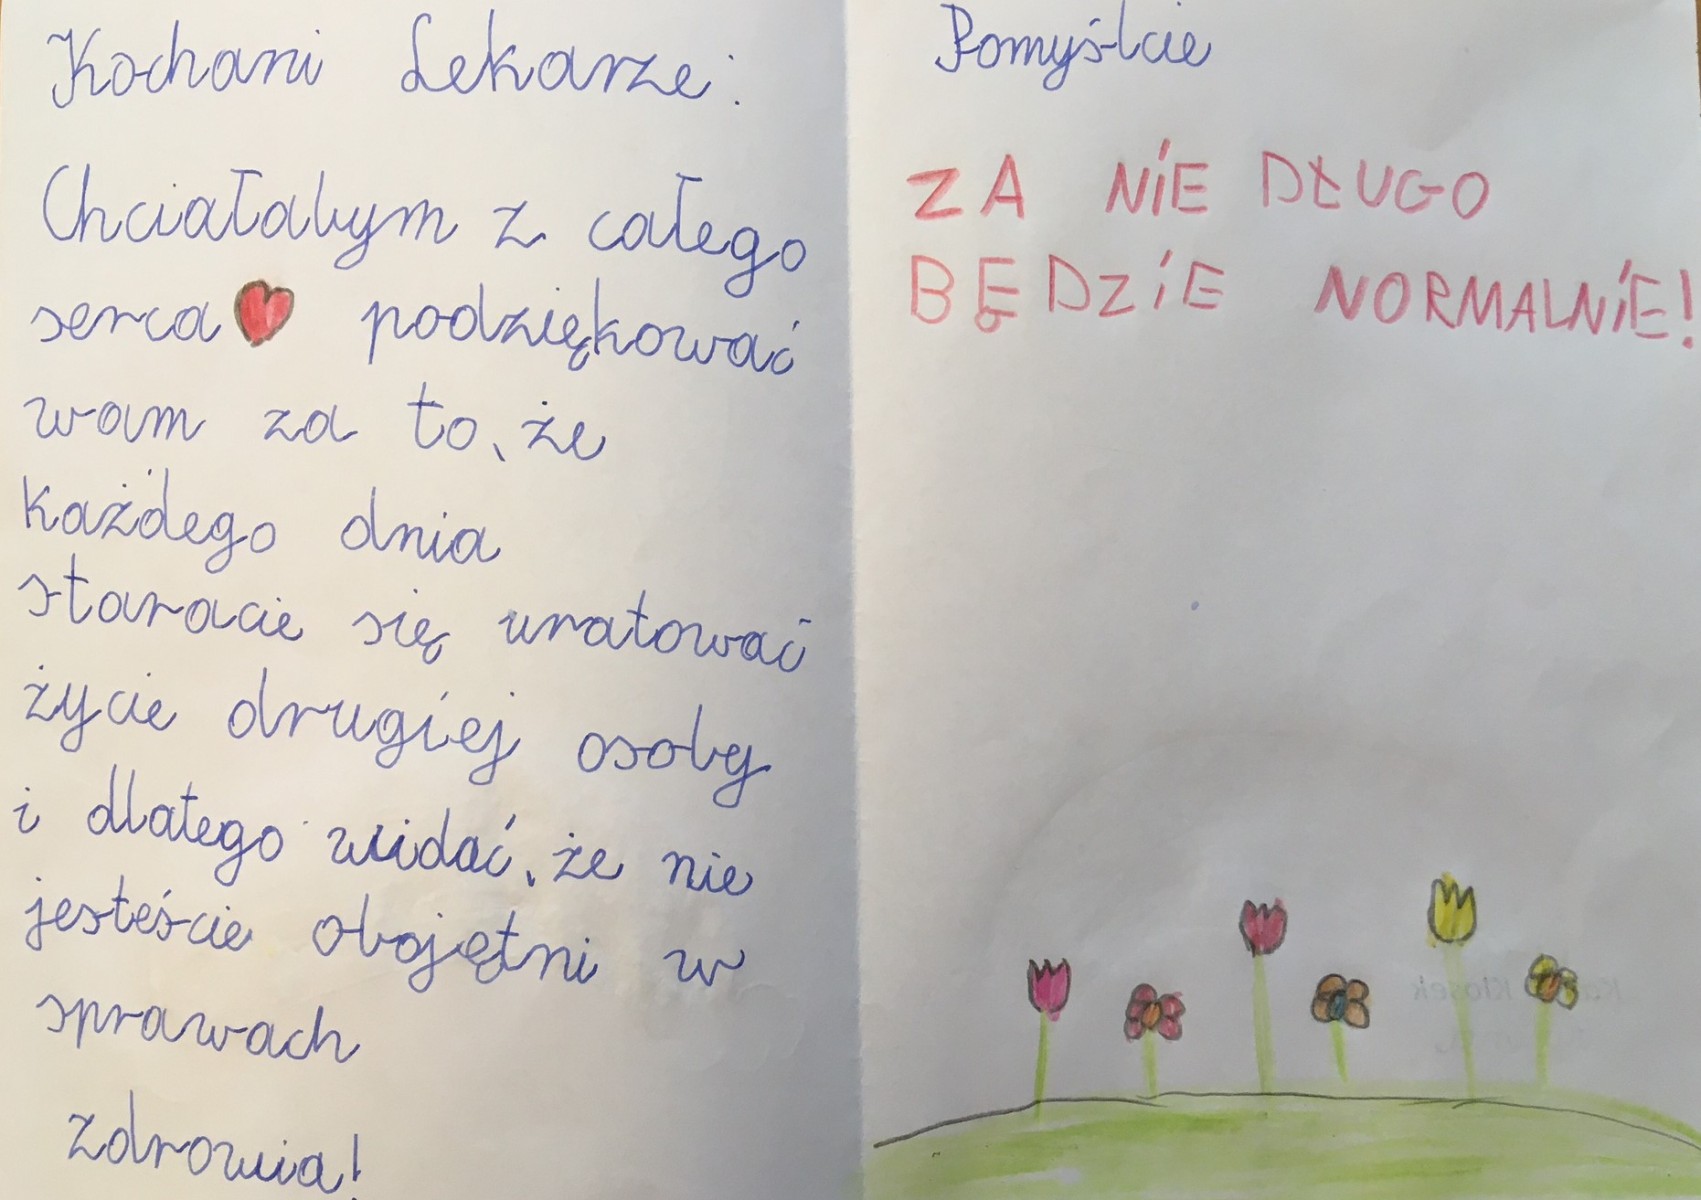 Kochani Lekarze:
Chciałabym z całego
serca podziękować
wam za to, że
każdego dnia
staracie się uratować
życie drugiej osoby
i dlatego widać, że nie
jesteście obojętni w
sprawach
zdrowia!
Pomyślcie
ZA NIE DŁUGO
BĘDZIE NORMALNIE!